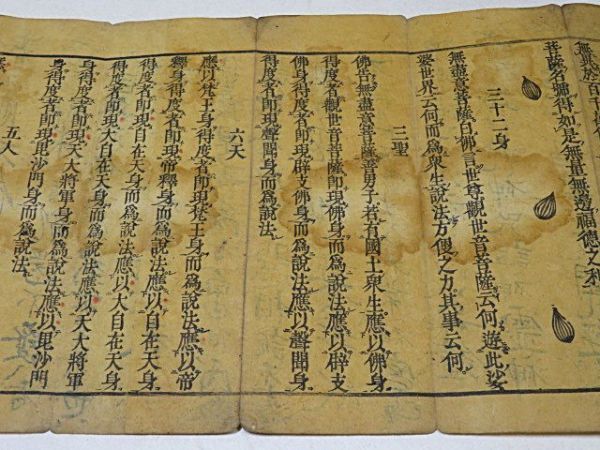 無異於百千
菩薩名號得如是無量無邊福德之利
三十二身
無盡意菩薩白佛言世尊觀世音菩薩云何遊此娑
婆世界云何而爲衆生說法方便之力其事云何
三聖
佛告無盡意菩薩善男子若有國土衆生應以佛身
得度者觀世音菩薩即現佛身而爲說法應以辟支
佛身得度者即現辟支佛身而爲說法應以聲聞身
得度者即現聲聞身而爲說法
六天
應以梵王身得度者即現梵王身而爲說法應以帝
釋身得度者即現帝釋身而爲說法應以自在天身
得度者即現自在天身而爲說法應以大自在天身
得度者即現大自在天身而爲說法應以天大將軍
身得度者即現天大將軍身而爲說法應以毘沙門
身得度者即現毘沙門身而爲說法
五人